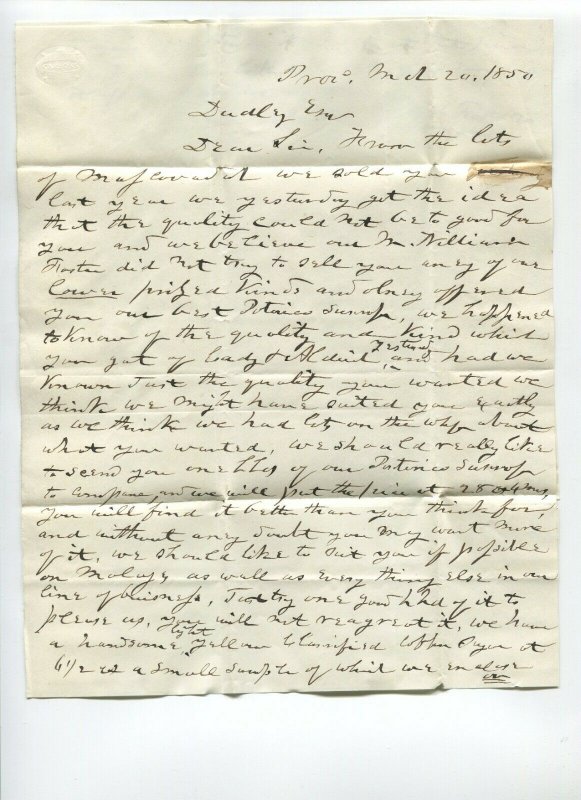 Provo. Mch 20. 1850
Dudley Esq
Dear Sir, From the lots
of Muscovado we sold you
last year we yesterday got the idea
that the quality could not be to good for
you and we believe our Mr William
Foster did not try to sell you aney of our
Lower prised kinds and olney offered
you our best Portorico, we happened
to know of the quality and kind which
you got of Cady & Aldrich yesterday, and had we
known Just the quality you wanted we
think we might have suited you exactly
as we think we had lots on the whf about
what you wanted, we should really like
to scend you one hhd of our Portorico
to compare and we will put the price at 28
you will find it better than you think for,
and without aney doubt you my want more
of it, we should like to suit you if possible
on Molases as wall as every thing else in our
line of buisness, Just try one good hhd of it to
please us, you will not reagreat it, we have
a handsome light yellow Classified Coffee Sugar at
6 1/2 cts a small sample of which we enclose
over